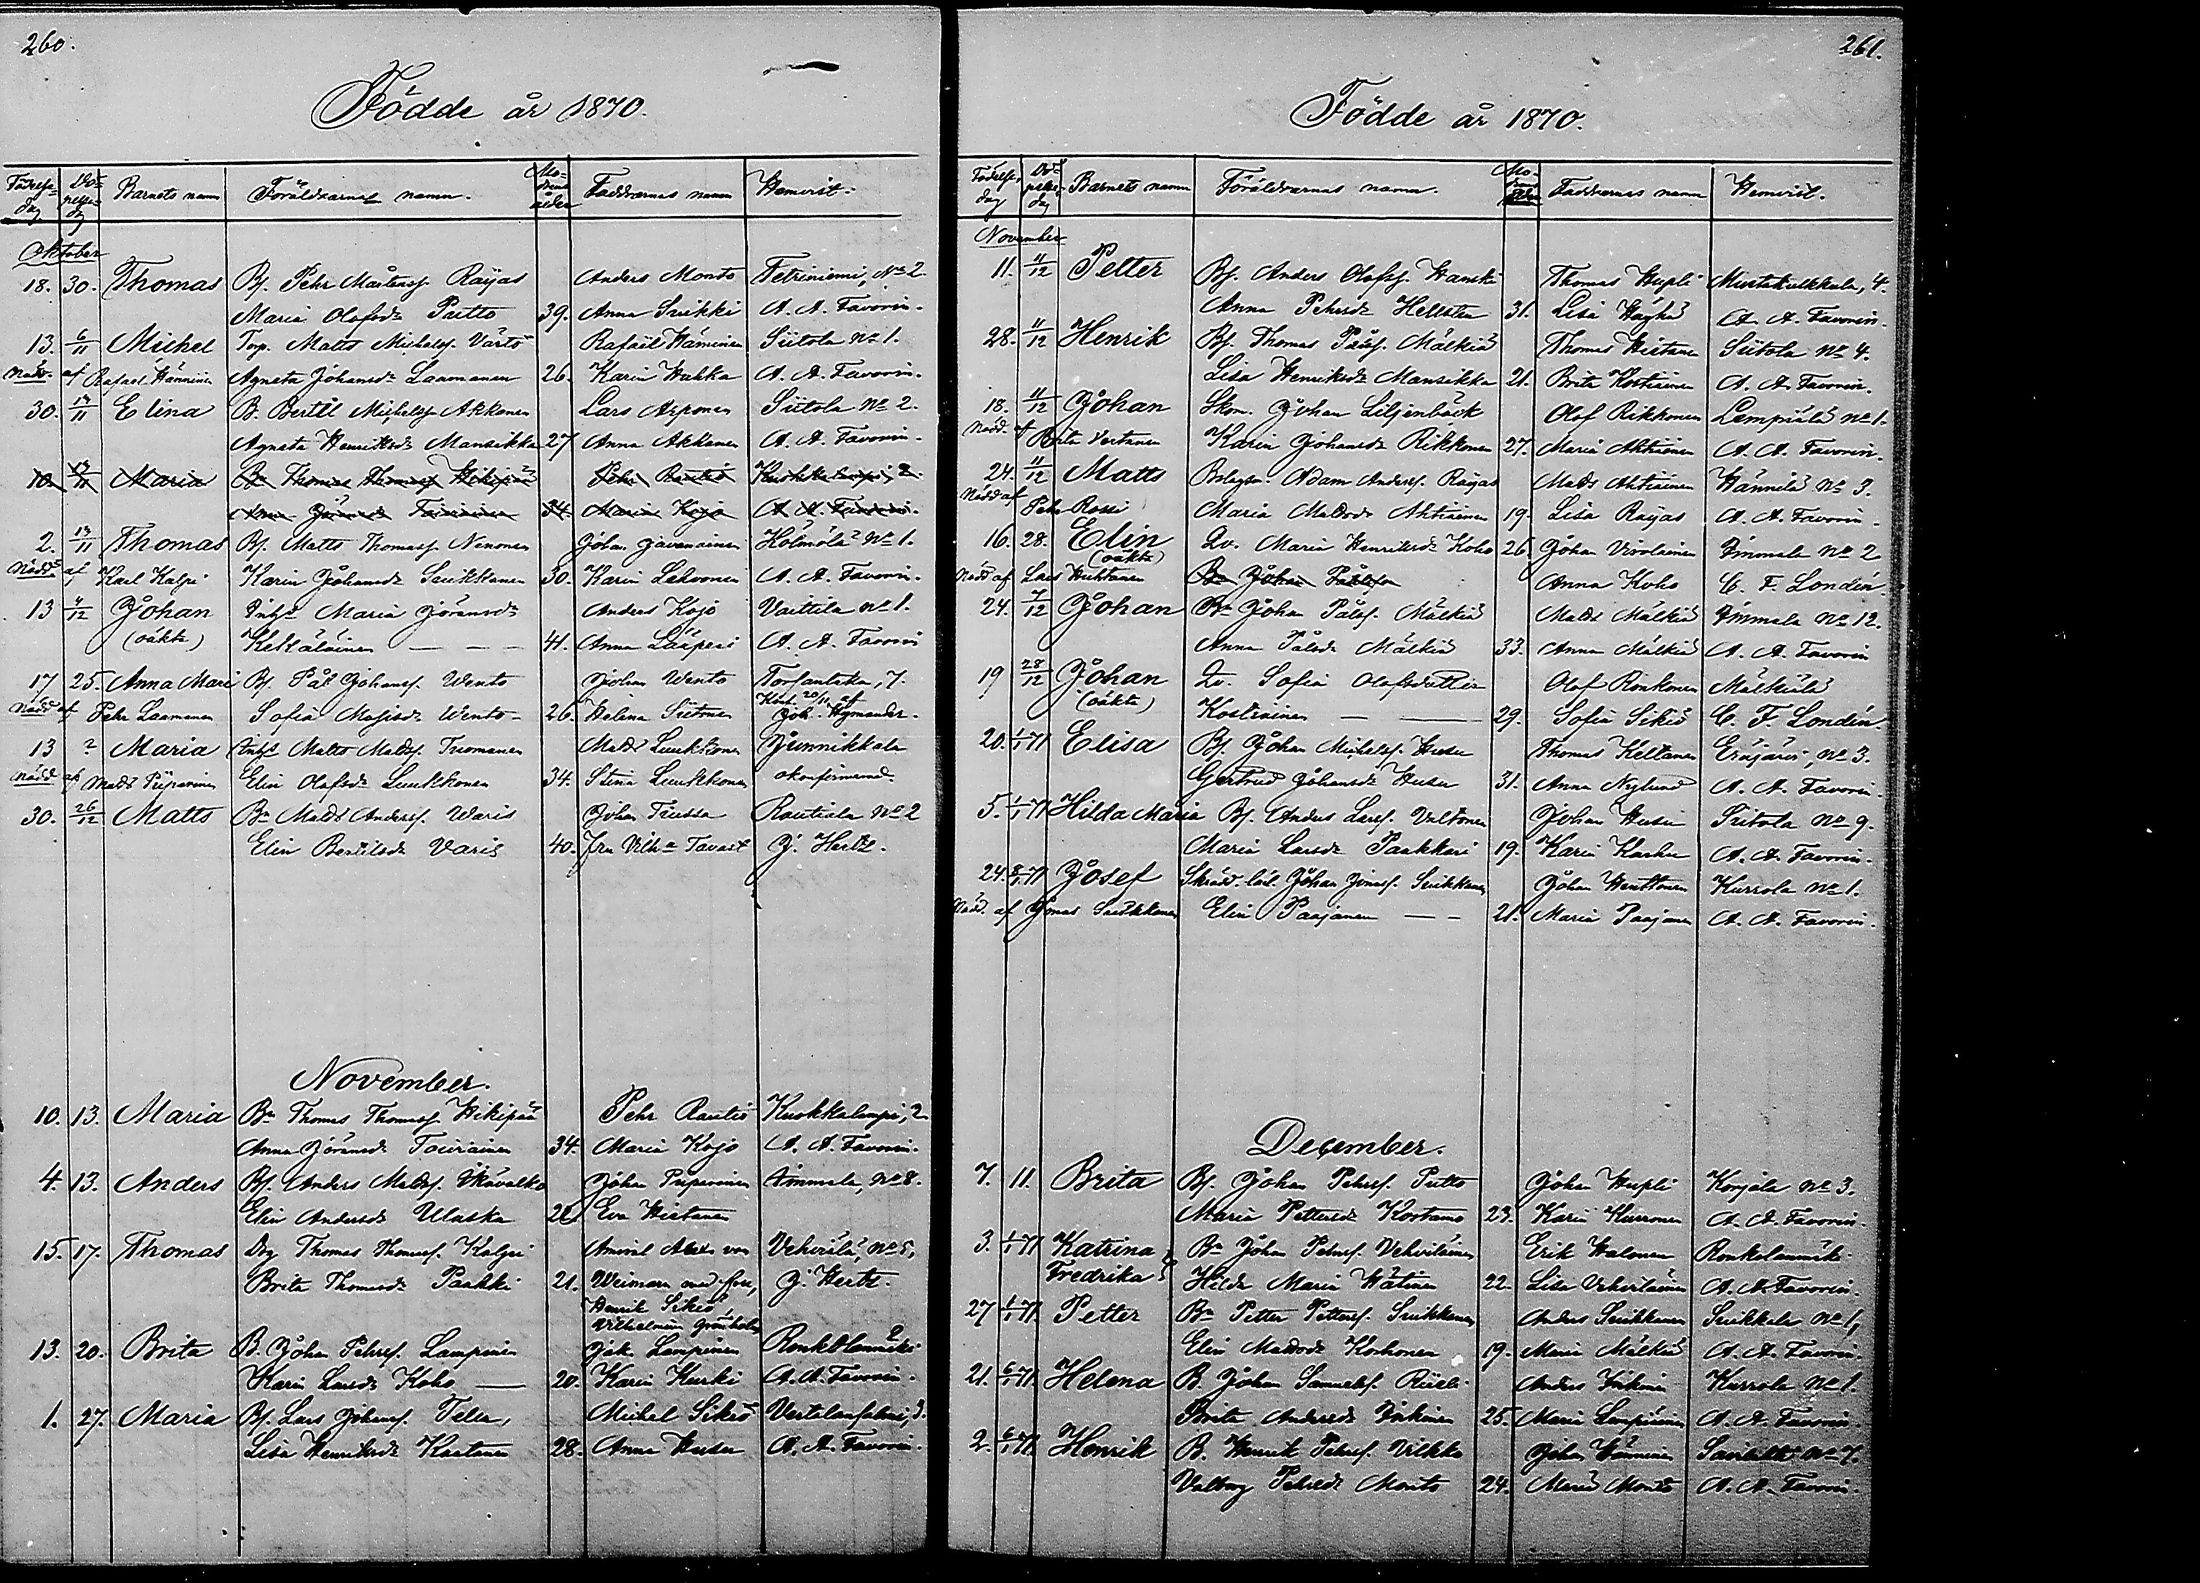 260.
Födde år 1870.
Födelse-dag Döpelse-dag Barnets namn Föräldrarnas namn. Moderns ålder Faddrarnas namn Hemvist.
Oktober
18. 30. Thomas Bs. Pehr Mårtenss. Raijas Anders Monto Tetriniemi, No 2
Maria Olofsdr Partto 39. Anna Suikki A. A. Favorin.
13. 6/11 Michel Torp. Matts Michelss. Värtö Rafael Hänninen Siitola No 1.
Nödd. af Rafael Hänninen Agneta Johansdr Laamanen 26. Karin Hukka A. A. Favorin.
30. 13/11 Elina B. Bertil Michelss. Akkanen Lars Asponen Siitola No 2.
Agneta Henriksdr Mansikka 27. Anna Akkanen A. A. Favorin.
10. 13/11 Maria Bn Thomas Thomass. Hikipää Pehr Rautio Kuokkalampi, 2.
Anna Göransdr Toiviainen 34. Maria Kojo A. A. Favorin.
2. 13/11 Thomas Bs. Matts Thomass. Nenonen Johan Javanainen Kolmölä No 1.
Nödd. af Karl Kalpi Karin Johansdr Suikkanen 30. Karin Lehvonen A. A. Favorin.
13 4/12 Johan Inhs Maria Göransdr Anders Kojo Vaittila No 1.
(oäkta) Keskäläinen — — — 41. Anna Lääperi A. A. Favorin
17 25. Anna Mari Bs. Pål Johanss. Wento Johan Wento Torsanteka, 7.
Nödd af Pehr Laamanen Sofia Mosisdr Wento 26. Helena Siitonen Joh. Hymander.
13 2 Maria Inhs Matts Matss. Tuomanen Mats Luukkonen Junnikkala
Nödd af Mats Piiparinen Elin Olofsdr Luukkonen 34. Stina Luukkonen okonfirmerad.
30. 26/12 Matts Bn Mats Anderss. Waris Johan Trussa Rautiala No 2
Elin Bertilsdr Varis 40. Fru Vilhna Tavast J. Hertz.
November.
10. 13. Maria Bn Thomas Thomass. Hikipää Pehr Rautio Kuokkalampi, 2
Anna Göransdr Toiviainen 34. Maria Kojo A. A. Favorin.
4. 13. Anders Bs. Anders Matss. Ikävalko Johan Piiparinen Ammala, No 8.
Elin Andersdr Uluska Eva Hietanen
15. 17. Thomas Drg Thomas Thomass. Kalpi Amiral Alex von Vehviälä, No 5.
Brita Thomasdr Paakki 21. Weimarn med fru, J. Hertz.
Henrik Sikiö,
Vilhelmina Grönholm
13. 20. Brita B. Johan Pehrss. Lampinen Jak. Lampinen
Karin Larsdr Koho — 20. Karin Kurki A. A. Favorin.
1. 27. Maria Bs. Lars Johanss. Telen, Michel Sikiö
Lisa Henriksdr Kaatanen 28. Anna Husu A. A. Favorin.
261.
Födde år 1870.
Födelse-dag Döpelse-dag Barnets namn Föräldrarnas namn. Moderns ålder Faddrarnas namn Hemvist.
November
11. 11/12 Petter Bs. Anders Olofss. Hanski Thomas Hupli Mustakulkkula, 4.
Anna Pehrsdr Hellsten 31. Lisa Häyhä A. A. Favorin.
28. 11/12 Henrik Bs. Thomas Pålss. Mälkiä Thomas Hietanen Siitola No 4.
Lisa Henriksdr Mansikka 21. Brita Kostiainen A. A. Favorin.
18. 11/12 Johan Skom. Johan Liljenbäck Olof Rikkonen Lempiälä No 1.
Nödd. af Brita Vertanen Karin Johansdr Rikkonen 27. Maria Ahtiainen A. A. Favorin.
24. 11/12 Matts Bolagsm. Adam Anderss. Raijas Mats Ahtiainen Hännilä No 3.
Nödd af Pehr Rossi Maria Matsdr Ahtiainen 19. Lisa Raijas A. A. Favorin.
16. 28. Elin Qv. Maria Henriksdr Koho 26. Johan Virolainen Immola No 2
(oäkta)
Nödd af Lars Huhtanen Bn Johan Pålsson Anna Koho C. F. Londén.
24. 4/12 Johan Bn Johan Pålss. Mälkiä Mats Mälkiä Immola No 12.
Anna Pålsdr Mälkiä 33. Anna Mälkiä A. A. Favorin
19 28/12 Johan Qv. Sofia Olofsdotter Olof Ronkonen Mälkiälä
(oäkta) Kostiainen — — 29. Sofia Sikiö C. F. Londén.
20. 1/1 71 Elisa Bs. Johan Michelss. Husu Thomas Keltanen Eräjärvi, No 3.
Gertrud Johansdr Husu 31. Anna Nylund A. A. Favorin.
5. 1/1 71 Hilda Maria Bs. Anders Larss. Valtonen Johan Husu Siitola No 9.
Maria Larsdr Paakkari 19. Karin Karhu A. A. Favorin.
24. 8/1 71 Josef Skrädd. lärl. Johan Jonass. Suikkanen Johan Henttonen Kurrola No 1.
Nödd. af Jonas Suikkanen Elin Paajanen — — 21. Maria Paajanen A. A. Favorin.
December.
7. 11. Brita Bs. Johan Pehrss. Putto Johan Hupli Korjala No 3.
Maria Pettersdr Kostamo 23. Karin Kurronen A. A. Favorin.
3. 1/1 71 Katrina Bn Johan Pehrss. Vehviläinen Erik Halonen
Fredrika Hilda Maria Hätinen 22. Lisa Vehviläinen A. A. Favorin.
27 1/1 71. Petter Bn Petter Petterss. Suikkanen Anders Suikkanen Suikkala No 1,
Elin Matsdr Korhonen 19. Maria Mälkiä A. A. Favorin.
21. 6/1 71 Helena B. Johan Samuelss. Rieli Anders Inkinen Kurrola No 1.
Brita Andersdr Inkinen 25. Maria Lempiäinen A. A. Favorin.
2. 6/1 71. Henrik B. Henrik Pehrss. Vilkko Johan Hänninen Savilahti No 7.
Valborg Pehrsdr Monto 24. Maria Monto A. A. Favorin.